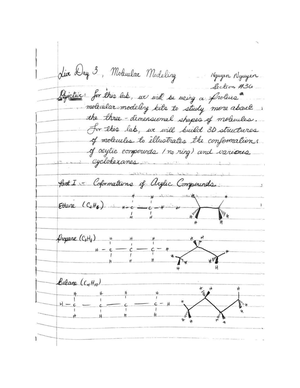 Day 3, Molecular Modeling
Nguyen Nguyen
Section #36
Objective: For this lab, we will be using a Prolius
molecular modeling kits to study more about
the three-dimensional shapes of molecules.
For this lab, we will build 3D structures
of molecules to illustrates the conformation
of acylic compounds (no ring) and various
cycloalkanes.
Part I: Conformations of Acylic Compounds
Ethane (C₂H₆)
Propane (C₃H₈)
Butane (C₄H₁₀)